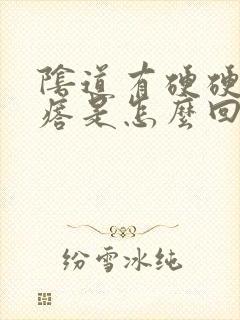 陰道有硬硬
痞是怎麼回
纷雪冰纯